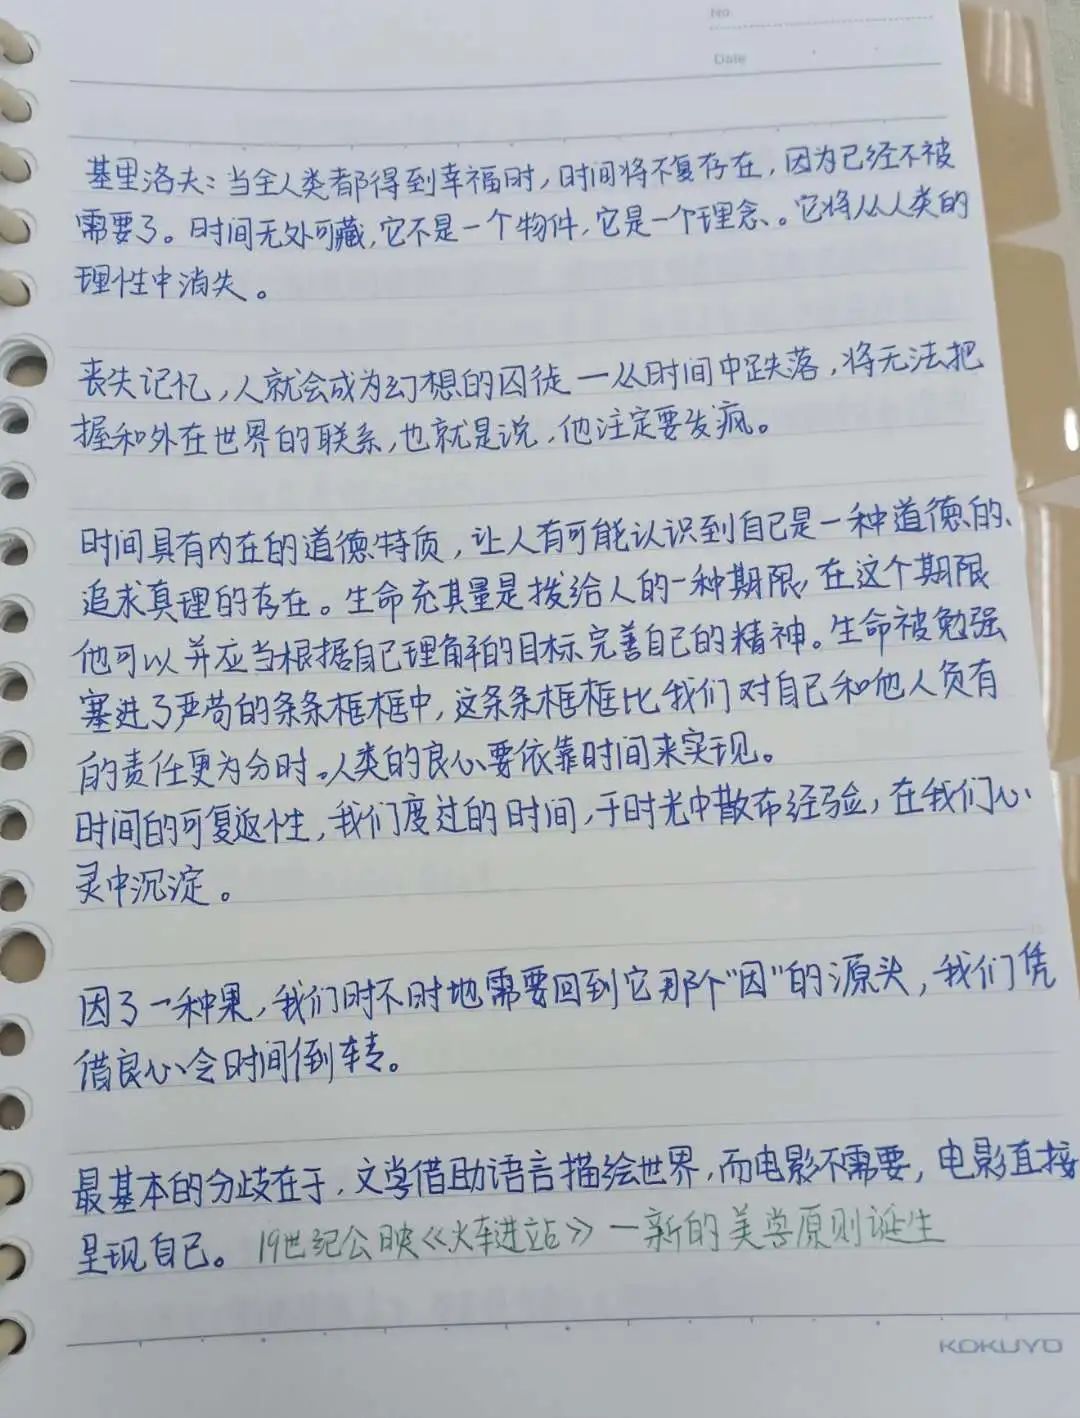 No
Date
基里洛夫：当全人类都得到幸福时，时间将不复存在，因为已经不被
需要了。时间无处可藏，它不是一个物件，它是一个理念。它将从人类的
理性中消失。
丧失记忆，人就会成为幻想的囚徒一从时间中跌落，将无法把
握和外在世界的联系，也就是说，他注定要发疯。
时间具有内在的道德特质，让人有可能认识到自己是一种道德的、
追求真理的存在。生命充其量是拨给人的一种期限，在这个期限
他可以并应当根据自己理解的目标完善自己的精神。生命被勉强
塞进了严苛的条条框框中，这条条框框比我们对自己和他人负有
的责任更为分时。人类的良心要依靠时间来实现。
时间的可复返性，我们度过的时间，于时光中散布经验，在我们心
灵中沉淀。
因了一种果，我们时不时地需要回到它那个“因”的源头，我们凭
借良心会时间倒转。
最基本的分歧在于，文学借助语言描绘世界，而电影不需要，电影直接
呈现自己。19世纪公映《火车进站》一新的美学原则诞生
KOKUYO